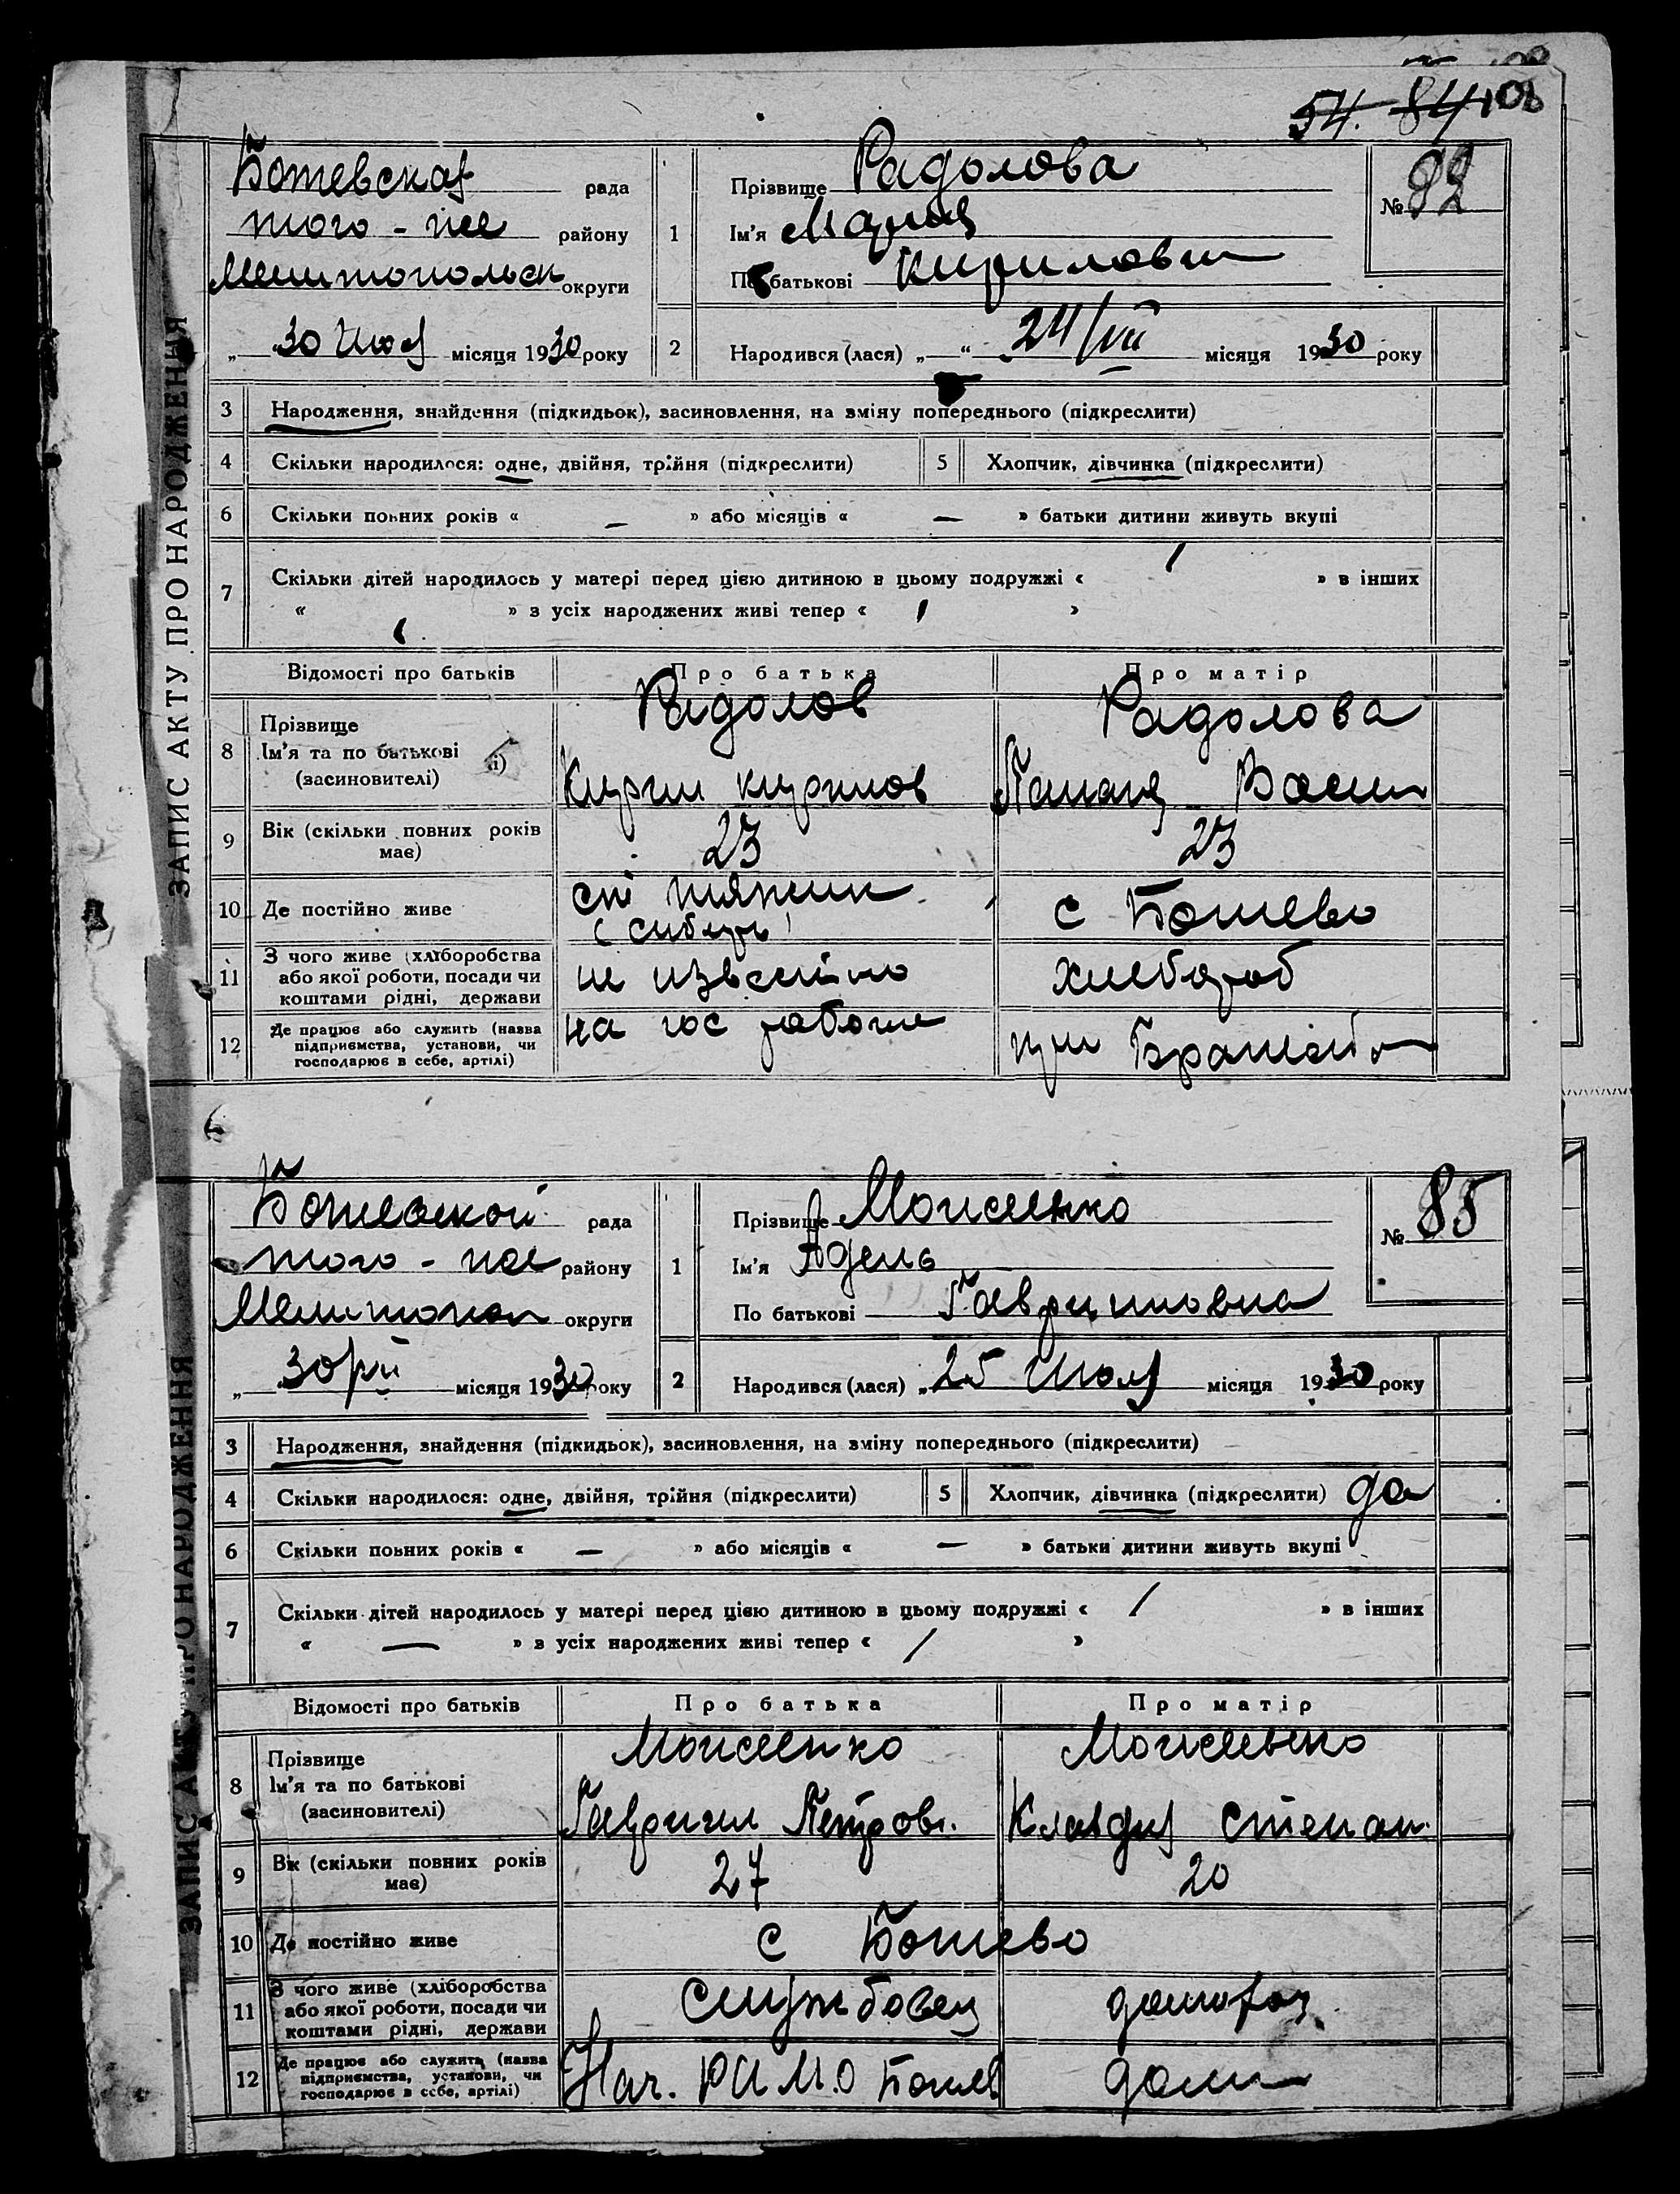 54. 84 108
ЗАПИС АКТУ ПРО НАРОДЖЕННЯ
Ботевская рада
того-же району
Мелитопольск округи
„ 30 июля місяця 1930 року
1 Прізвище Радолова
Ім'я Мария
По батькові Кирилловн
№ 82
2 Народився (лася) „ “ 24/VII місяця 1930 року
3 Народження, знайдення (підкидьок), засиновлення, на зміну попереднього (підкреслити)
4 Скільки народилося: одне, двійня, трійня (підкреслити) 5 Хлопчик, дівчинка (підкреслити)
6 Скільки повних років « — » або місяців « — » батьки дитини живуть вкупі
7 Скільки дітей народилось у матері перед цією дитиною в цьому подружжі « 1 » в інших
« 1 » з усіх народжених живі тепер « 1 »
Відомості про батьків Про батька Про матір
8 Прізвище Ім'я та по батькові (засновителі)
Радолов Радолова
Кирил кирилов Василь
9 Вік (скільки повних років має) 23 23
10 Де постійно живе
ст тяжин с Ботево
(сибирь)
11 З чого живе (хліборобства або якої роботи, посади чи коштами рідні, держави
не известно хлебороб
12 Де працює або служить (назва підприємства, установи, чи господарює в себе, артілі)
на гос работе при
ЗАПИС АКТУ ПРО НАРОДЖЕННЯ
Ботевской рада
того-же району
Мелитопол округи
„ 30/VII місяця 1930 року
1 Прізвище Моисеенко
Ім'я Адель
По батькові Гавриловна
№ 85
2 Народився (лася) „ 25 июля місяця 1930 року
3 Народження, знайдення (підкидьок), засиновлення, на зміну попереднього (підкреслити)
4 Скільки народилося: одне, двійня, трійня (підкреслити) 5 Хлопчик, дівчинка (підкреслити) да
6 Скільки повних років « — » або місяців « — » батьки дитини живуть вкупі
7 Скільки дітей народилось у матері перед цією дитиною в цьому подружжі « 1 » в інших
« — » з усіх народжених живі тепер « 1 »
Відомості про батьків Про батька Про матір
8 Прізвище Ім'я та по батькові (засиновителі)
Моисеенко Моисеенко
Гавриил Петров. Клавдия Степан.
9 Вік (скільки повних років має) 27 20
10 Де постійно живе с Ботево
11 З чого живе (хліборобства або якої роботи, посади чи коштами рідні, держави
службовец домохоз.
12 Де працює або служить (назва підприємства, установи, чи господарює в себе, артілі)
Нач. Р А М.О Ботев дома